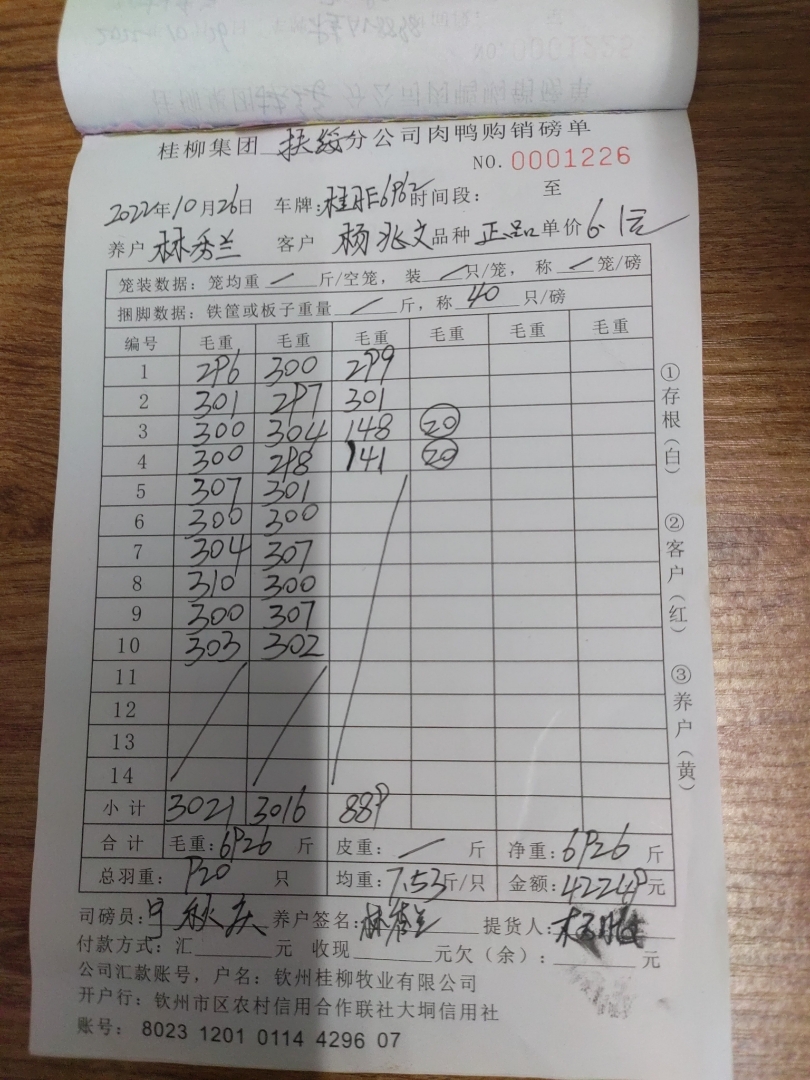 桂柳集团 扶绥 分公司肉鸭购销磅单
NO. 0001226
2022年10月26日 车牌: 6P62 时间段: 至
养户 林秀兰 客户 杨兆文 品种 正品 单价 6.1元
笼装数据: 笼均重 / 斤/空笼, 装 / 只/笼, 称 / 笼/磅
捆脚数据: 铁筐或板子重量 / 斤, 称 40 只/磅
编号 毛重 毛重 毛重 毛重 毛重 毛重
1 296 300 299
2 301 297 301
3 300 304 148 20
4 300 298 141 20
5 307 301
6 300 300
7 304 307
8 310 300
9 300 307
10 303 302
11
12
13
14
小计 3021 3016 889
合计 毛重: 6926 斤 皮重: / 斤 净重: 6926 斤
总羽重: 920 只 均重: 7.53 斤/只 金额: 42249 元
司磅员: 秋庆 养户签名: 林秀兰 提货人:
付款方式: 汇 元 收现 元欠(余): 元
公司汇款账号, 户名: 钦州桂柳牧业有限公司
开户行: 钦州市区农村信用合作联社大垌信用社
账号: 8023 1201 0114 4296 07
①存根(白)
②客户(红)
③养户(黄)